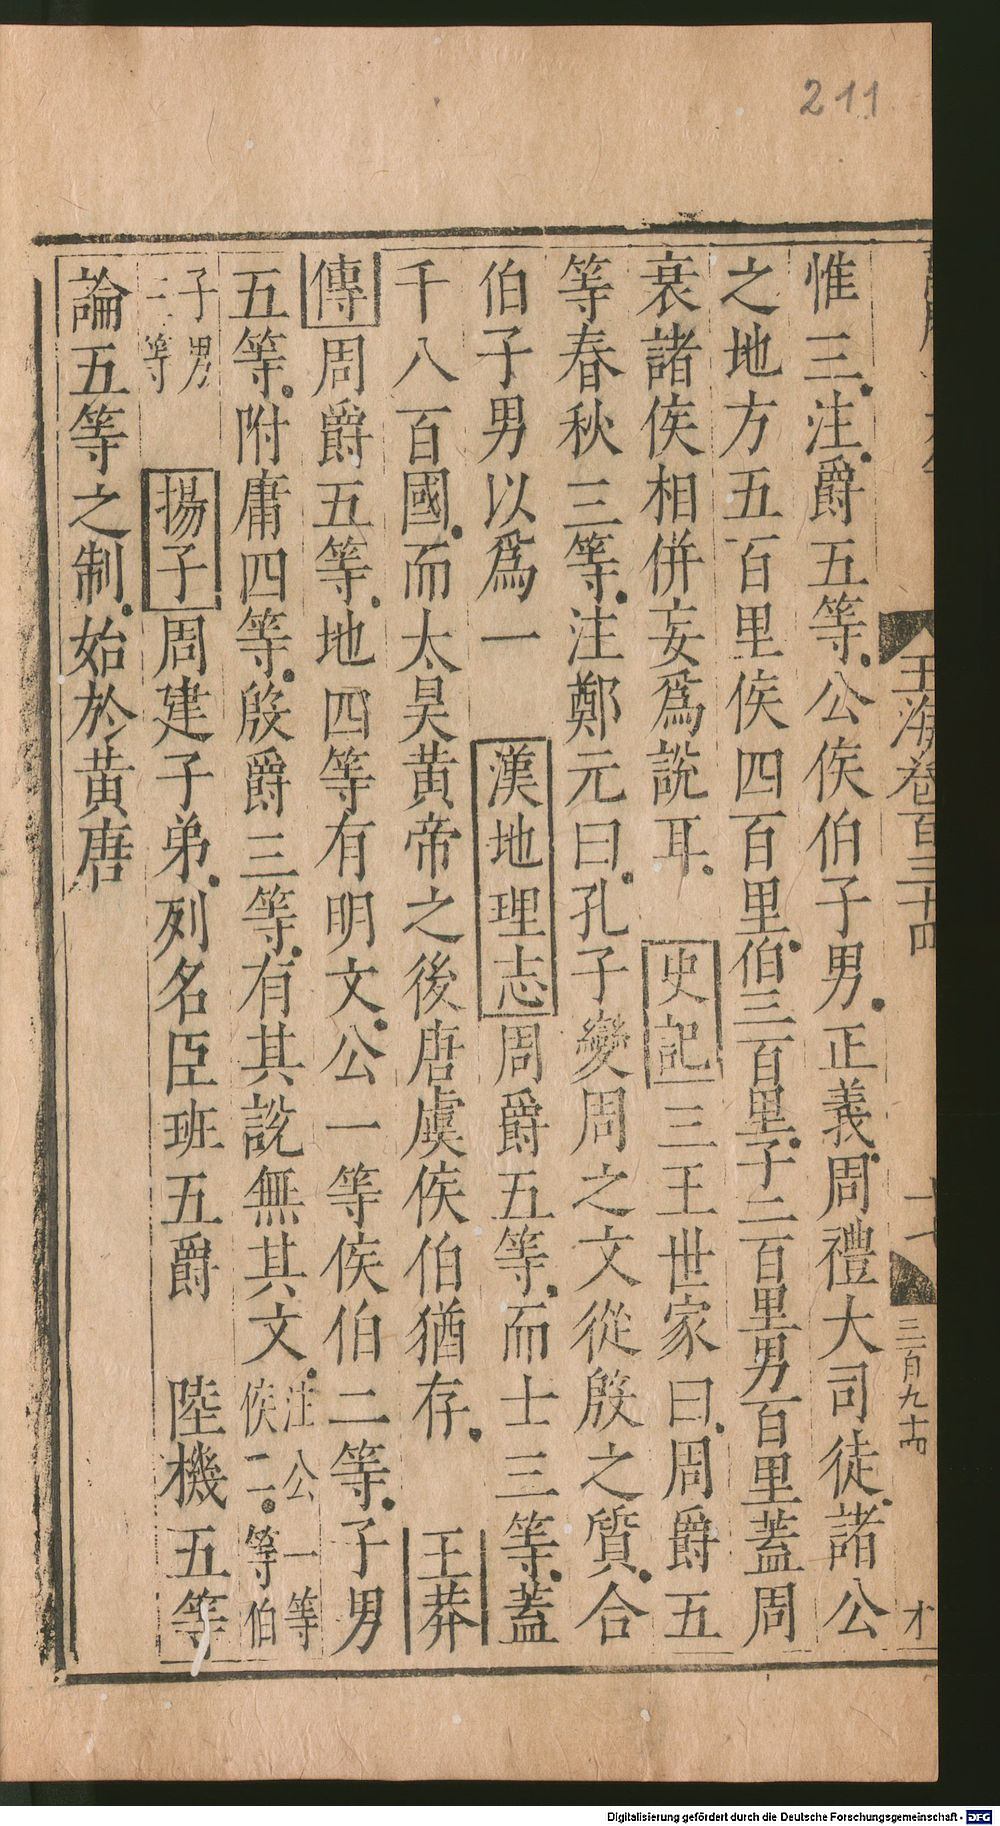 211
玉海卷百三十四
十七
惟三注爵五等公侯伯子男正義周禮大司徒諸公
之地方五百里侯四百里伯三百里子二百里男百里蓋周
衰諸侯相併妄爲說耳 史記三王世家曰周爵五
等春秋三等注鄭元曰孔子變周之文從殷之質合
伯子男以爲一 漢地理志周爵五等而士三等蓋
千八百國而太昊黃帝之後唐虞侯伯猶存 王莽
傳周爵五等地四等有明文公一等侯伯二等子男
五等附庸四等殷爵三等有其說無其文注公一等侯二等伯
子男三等 揚子周建子弟列名臣班五爵 陸機五等
論五等之制始於黃唐
Digitalisierung gefördert durch die Deutsche Forschungsgemeinschaft - DFG